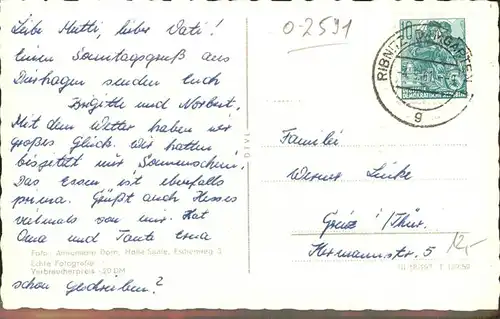 Liebe Mutti, lieber Vati!
Einen Sonntagsgruß aus
Dierhagen senden Euch
Brigitte und Norbert.
Mit dem Wetter haben wir
großes Glück. Wir hatten
bisjetzt nur Sonnenschein!
Das Essen ist ebenfalls
prima. Grüßt auch Hesses
vielmals von mir. Hat
Oma und Tante Erna
Foto: Annemarie Dorn, Halle/Saale,
Echte Fotografie
Verbraucherpreis -,20 DM
schon geschrieben?
0-2591
10
RIBNITZ-DAMGARTEN
g
DEMOKRATISCHE
Familie
Werner Linke
Greiz /Thür.
Hermannstr. 5
12,-